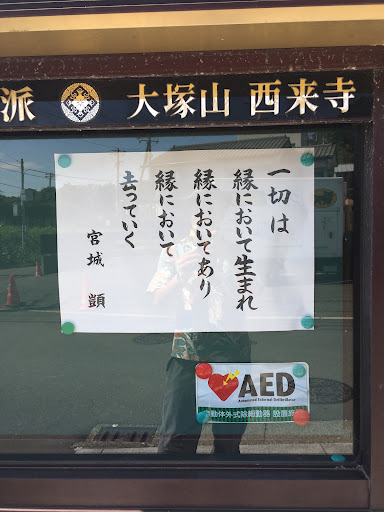 派 大塚山 西来寺
一切は
縁において生まれ
縁においてあり
縁において
去っていく
宮城 顗
AED
Automated External Defibrillator
自動体外式除細動器 設置